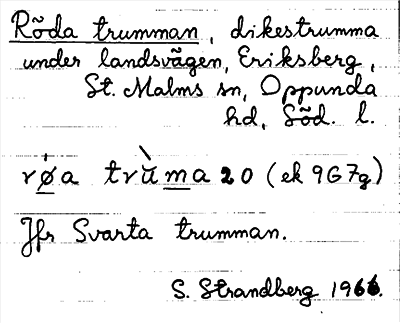 Rõda trumman, dikestrumma
under landsvãgen, Eriksberg,
St. Malms sn, Oppunda
hd, Sõd. l.
røa trùma 20 (ek 9G7g)
Jfr Svarta trumman.
S. Strandberg 1966.